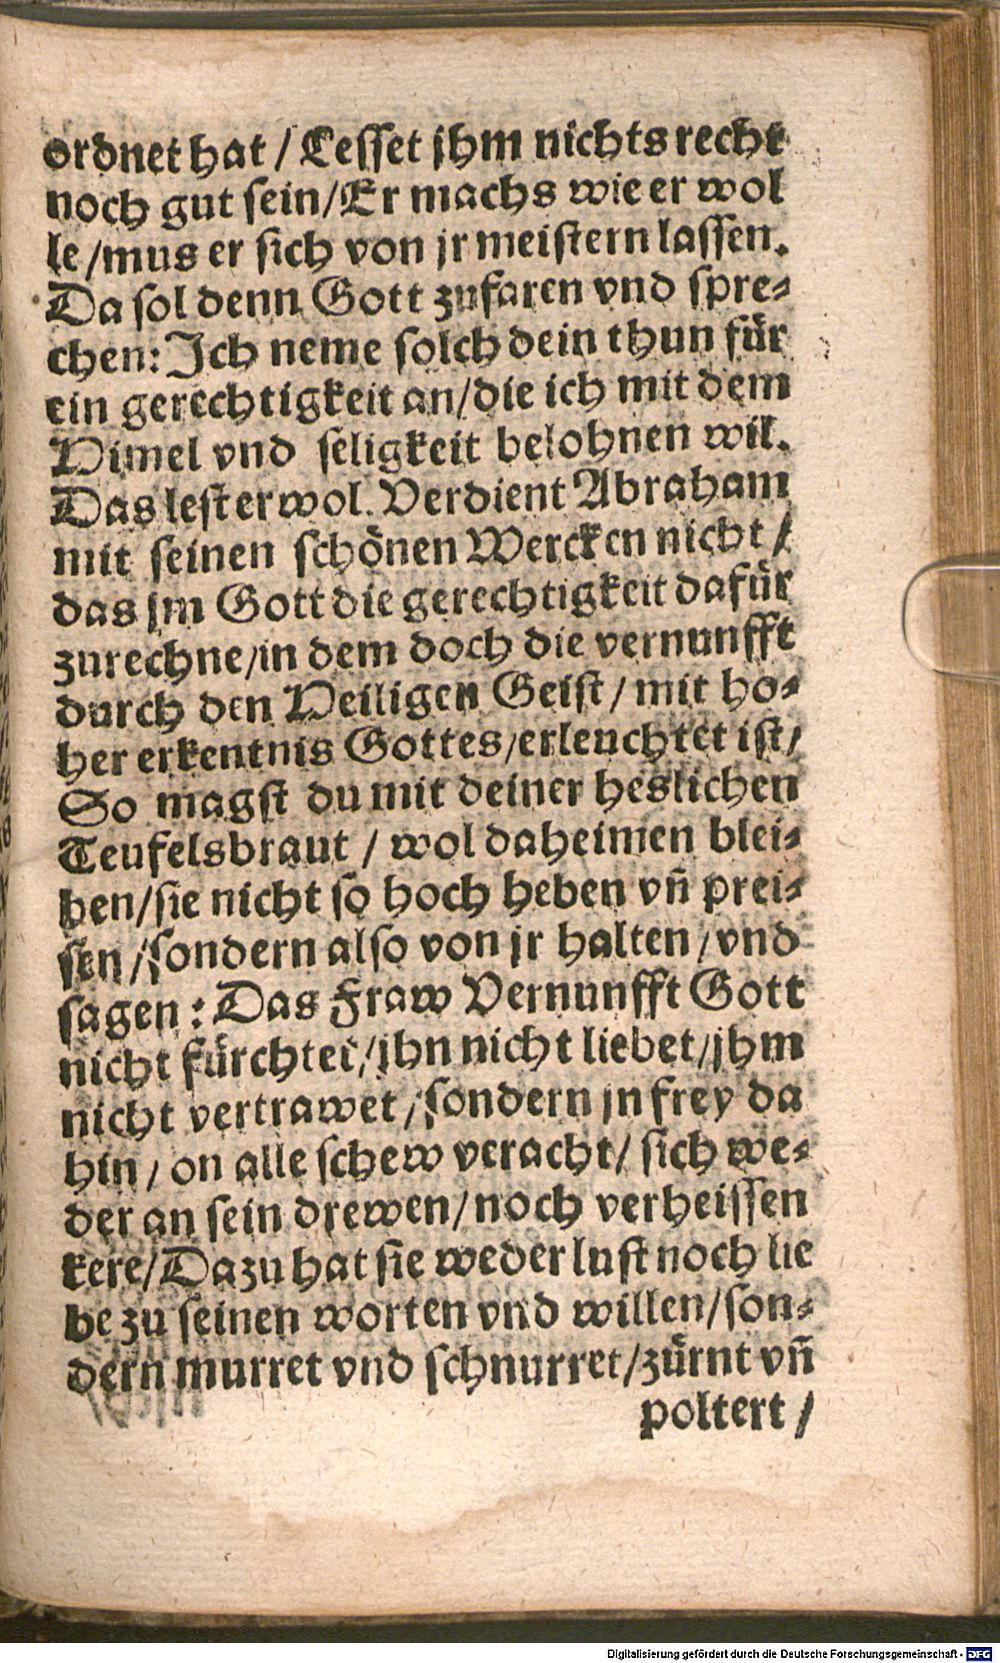 ordnet hat / Lesset jhm nichts recht
noch gut sein/Er machs wie er wol
le/mus er sich von jr meistern lassen.
Da sol denn Gott zufaren vnd spre-
chen: Jch neme solch dein thun für
ein gerechtigkeit an/die ich mit dem
Himel vnd seligkeit belohnen wil.
Das lest er wol. Verdient Abraham
mit seinen schönen Wercken nicht/
das jm Gott die gerechtigkeit dafür
zurechne/in dem doch die vernunfft
durch den Heiligen Geist/mit ho-
her erkentnis Gottes/erleuchtet ist/
So magst du mit deiner heslichen
Teufelsbraut / wol daheimen blei-
ben/sie nicht so hoch heben vñ prei-
sen/sondern also von jr halten/vnd
sagen: Das Fraw Vernunfft Gott
nicht fürchtet/jhn nicht liebet/jhm
nicht vertrawet/sondern jn frey da
hin/on alle schew veracht/sich we-
der an sein drewen/noch verheissen
kere/Dazu hat sie weder lust noch lie
be zu seinen worten vnd willen/son-
dern murret vnd schnurret/zürnt vñ
poltert/
Digitalisierung gefördert durch die Deutsche Forschungsgemeinschaft - DFG